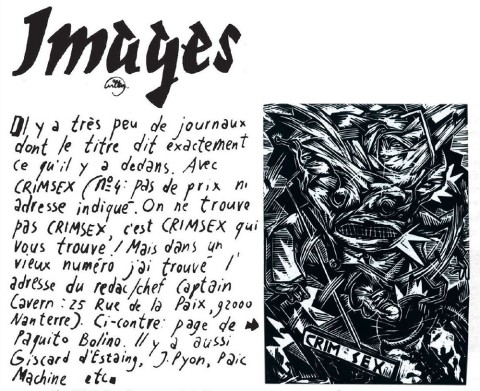 Images
Il y a très peu de journaux
dont le titre dit exactement
ce qu'il y a dedans. Avec
CRIMSEX (n°4: pas de prix ni
adresse indiqué. On ne trouve
pas CRIMSEX, c'est CRIMSEX qui
vous trouve! Mais dans un
vieux numéro j'ai trouvé l'
adresse du redac/chef captain
Cavern: 25 Rue de la Paix, 92000
Nanterre). Ci-contre: page de
Paquito Bolino. Il y a aussi
Giscard d'Estaing, J.Pyon, Paic
Machine etc.
CRIM-SEX